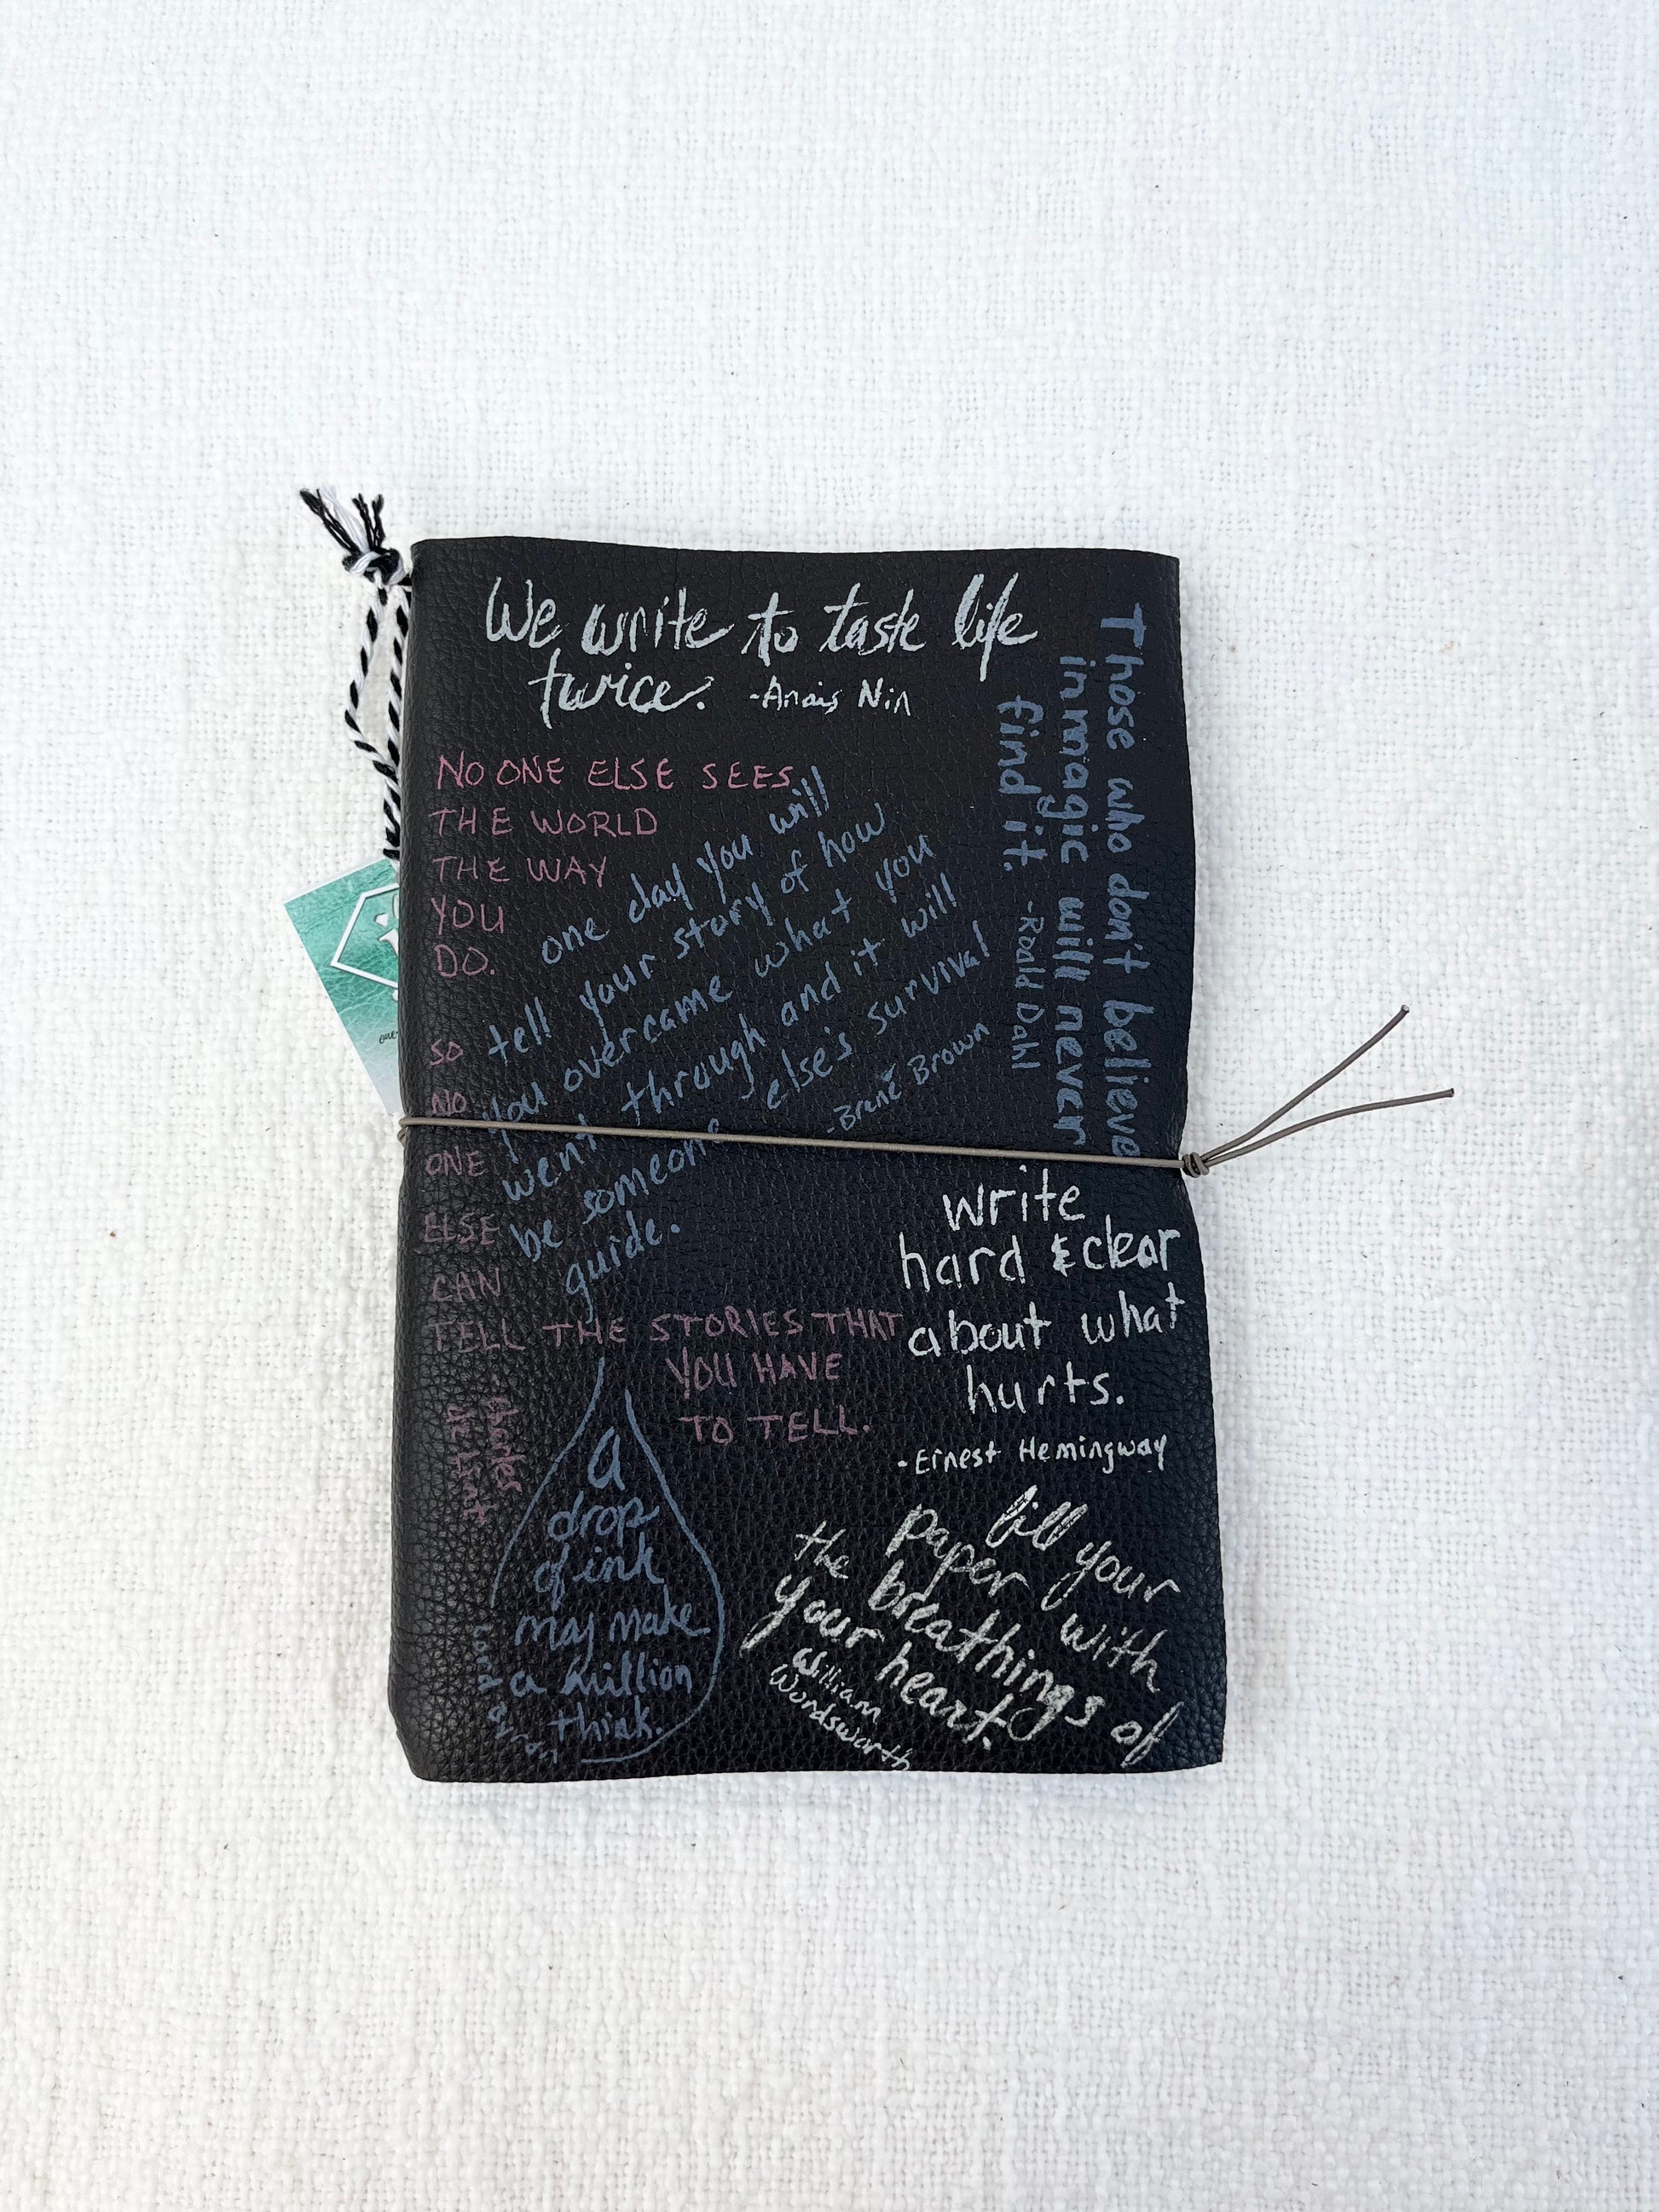 We write to taste life
twice. -Anais Nin
Those who don't believe
in magic will never
find it. -Roald Dahl
NO ONE ELSE SEES
THE WORLD
THE WAY
YOU
DO.
SO
NO
ONE
ELSE
CAN
TELL THE STORIES THAT
YOU HAVE
TO TELL.
Charles
de Lint
one day you will
tell your story of how
you overcame what you
went through and it will
be someone else's survival
guide.
-Brené Brown
write
hard & clear
about what
hurts.
-Ernest Hemingway
a
drop
of ink
may make
a million
think.
Lord Byron
fill your
paper with
the breathings of
your heart.
William
Wordsworth